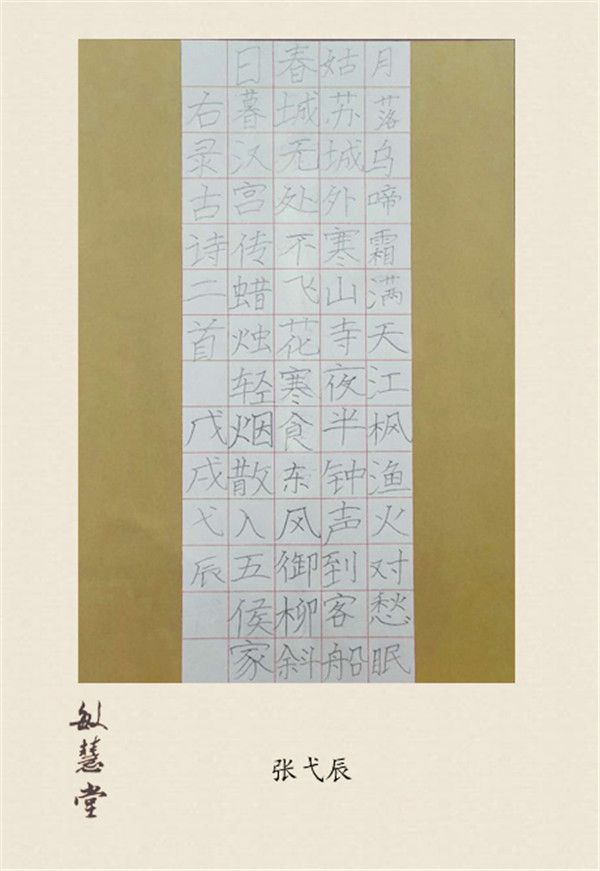 月落乌啼霜满天江枫渔火对愁眠
姑苏城外寒山寺夜半钟声到客船
春城无处不飞花寒食东风御柳斜
日暮汉宫传蜡烛轻烟散入五侯家
右录古诗二首 戊戌弋辰
敏慧堂
张弋辰